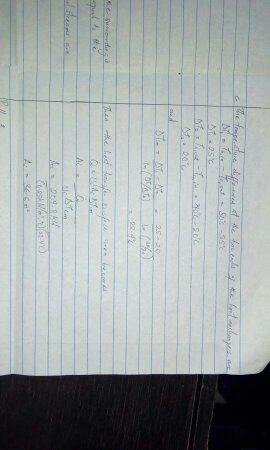 c. The temperature differences at the two ends of the heat exchangers are
ΔT₁ = Th,in − Tc,out = 80°C − 55°C
ΔT₁ = 25°C
ΔT₂ = Th,out − Tc,in = 40°C − 20°C
ΔT₂ = 20°C
and
ΔTlm = ΔT₁ − ΔT₂ / ln (ΔT₁/ΔT₂) = 25 − 20 / ln (25/20)
= 22.4°C
Then the heat transfer surface area becomes
Q = UiAiΔTm
Ai = Q / Ui ΔTlm
Ai =
Ai = m²
the surroundings
equal to the
streams are